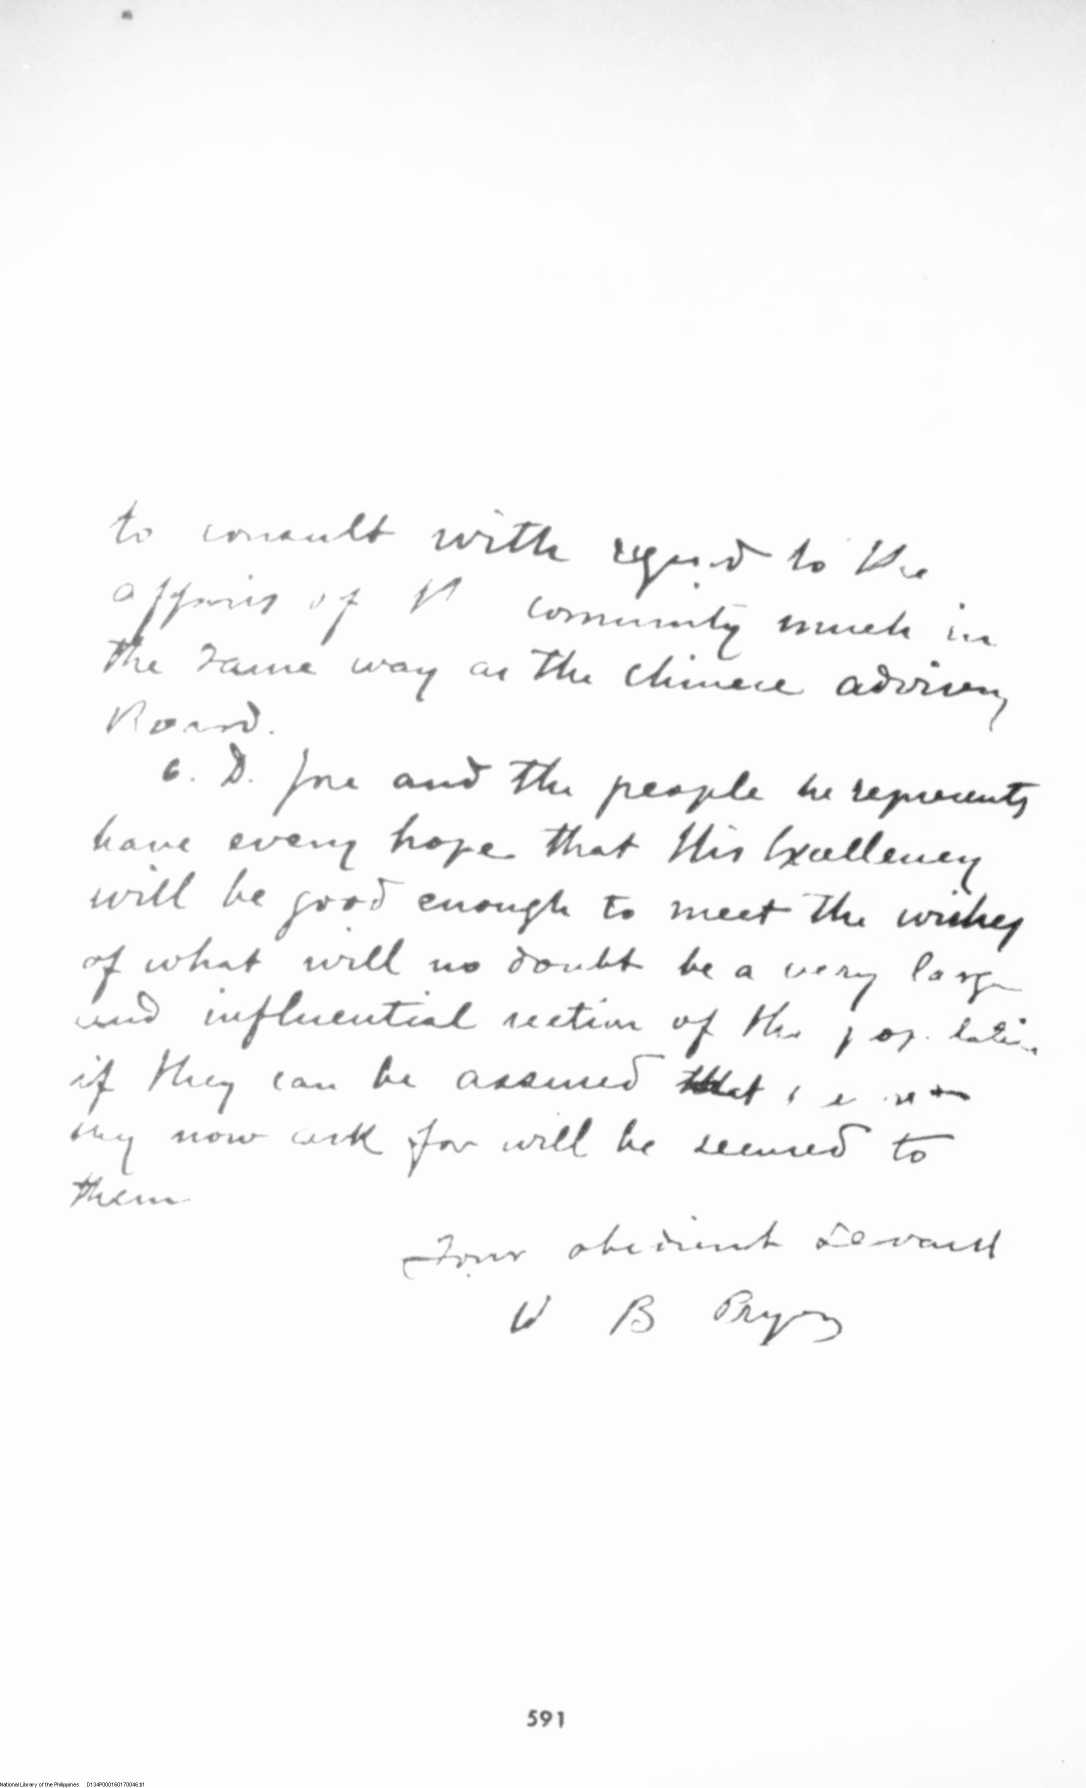 to consult with regard to the
affairs of the community much in
the same way as the Chinese advisory
Board.
6. D. Jose and the people he represents
have every hope that His Excellency
will be good enough to meet the wishes
of what will no doubt be a very large
and influential section of the population
if they can be assured that
they now ask for will be secured to
them
Your obedient Servant
W B Pryer
591
National Library of the Philippines